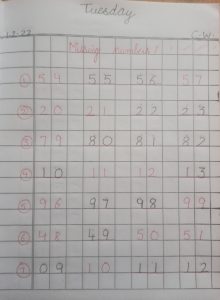 Tuesday
1.2.22 C.W.
Missing numbers!
① 54 55 56 57
② 20 21 22 23
③ 79 80 81 82
④ 10 11 12 13
⑤ 96 97 98 99
⑥ 48 49 50 51
⑦ 09 10 11 12